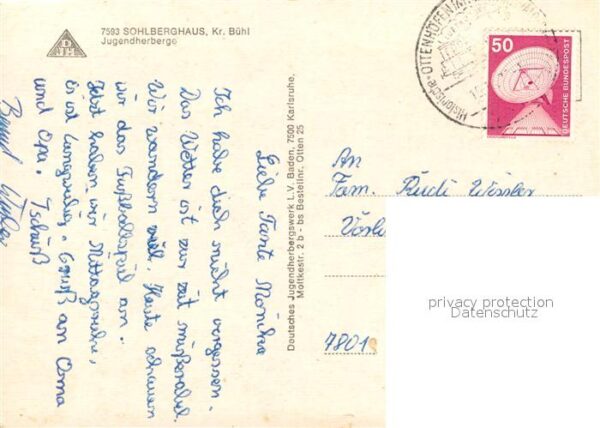 7593 SOHLBERGHAUS, Kr. Bühl
Jugendherberge
DJH
Liebe Tante Monika
Ich habe dich nicht vergessen.
Das Wetter ist zur zeit mißerabel.
Wir wandern viel. Heute schauen
wir das Fußballspiel an.
Jetzt haben wir Mittagsruhe,
Es ist langweilig. Gruß an Oma
und Opa. Tschüß
Deutsches Jugendherbergswerk L.V. Baden, 7500 Karlsruhe,
Moltkestr. 2 b - bs Bestellnr. Otten 25
OTTENHÖFEN
50
DEUTSCHE BUNDESPOST
An
Fam. Rudi
7801
privacy protection
Datenschutz